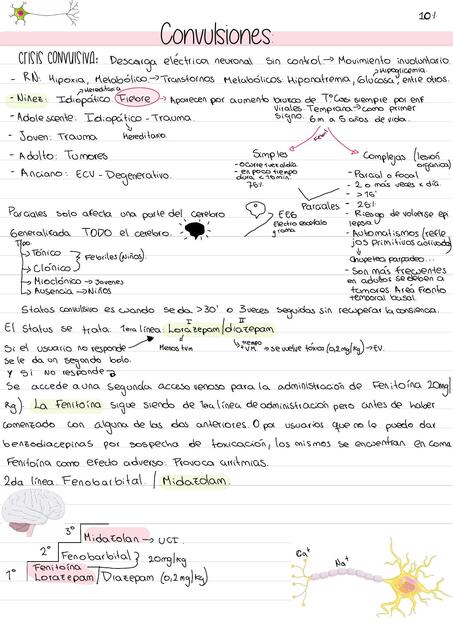 10%
Convulsiones:
CRISIS CONVULSIVA: Descarga eléctrica neuronal sin control → Movimiento involuntario.
- RN: Hipoxia, Metabólico → Transtornos Metabólicos. Hiponatremia, Glucosa, entre otros.
Hipoglicemia.
Hereditaria
- Niñez: Idiopático Fiebre → Aparecen por aumento brusco de T° Casi siempre por enf
virales. Temprana → como primer
signo. 6m a 5 años de vida.
- Adolescente: Idiopático - Trauma.
Hereditario.
- Joven: Trauma
- Adulto: Tumores
- Anciano: ECV - Degenerativo.
Simples
- Ocurre 1 vez al día
- en poco tiempo
dura < 15 min.
75%
Complejas (lesión
orgánica)
- Parcial o focal
- 2 o más veces x día.
- > 15'
- 25%
- Riesgo de volverse epi
lepsia
- Automatismos (refle
jos primitivos activados)
Chupeteo parpadeo...
- Son más frecuentes
en adultos se deben a
tumores. Área fronto
temporal basal.
Parciales
EEG
Electro encefalo
grama
Parciales solo afecta una parte del cerebro
Generalizada TODO el cerebro.
Tipo
Tónico
Clónico
Febriles (Niños).
Mioclónico → Jóvenes
Ausencia → Niños
Status convulsivo es cuando se da > 30' o 3 veces seguidas sin recuperar la consiencia.
El status se trata: 1era línea: Lorazepam/diazepam
I
II
Si el usuario no responde
Menos t½m
+ tiempo
VM → se vuelve tóxico (0,2mg/kg) → EV.
se le da un segundo bolo.
Y si no responde
Se accede a una segunda acceso venoso para la administración de Fenitoína 20mg/
kg). La fenitoína sigue siendo de 1era línea de administración pero antes de haber
comenzado con alguna de las dos anteriores. O por usuarios que no le puedo dar
benzodiacepinas por sospecha de toxicación, los mismos se encuentran en coma
Fenitoína como efecto adverso: Provoca arritmias.
2da línea. Fenobarbital / Midazolam.
3° Midazolan → UCI.
2° Fenobarbital
20mg/kg
1° Fenitoina
Lorazepam / Diazepam (0,2mg/kg)
Ca+
Na+